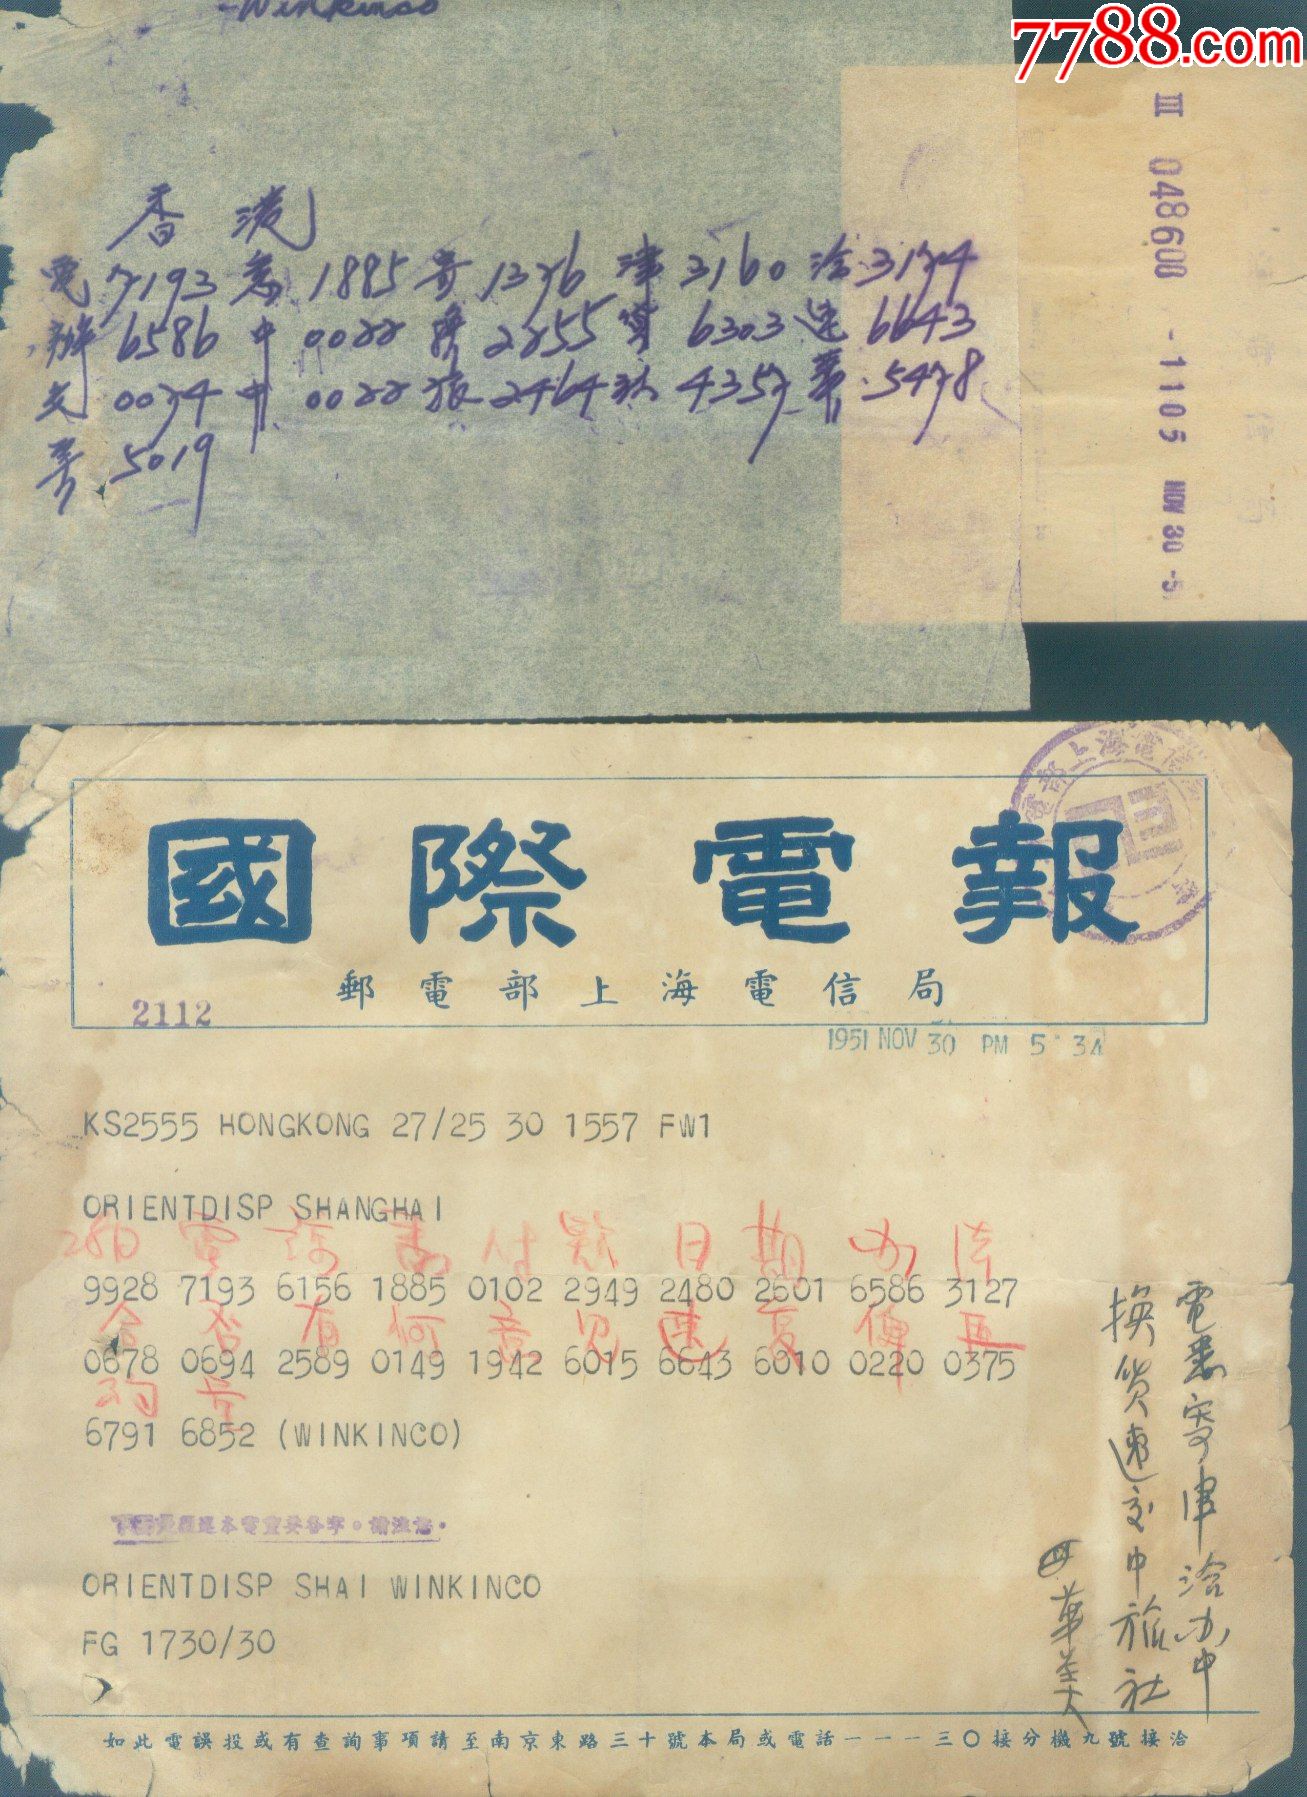 7788.com
-Winkinco
香港
電 7193 悉 1885 寄 1376 津 3160 洽 3174
辦 6586 中 0022 換 2255 貨 6303 速 6643
交 0074 中 0022 旅 2464 社 4357 華 5478
美 5019
III 048608 -1105 NOV 30 -5
國際電報
郵電部上海電信局
2112
1951 NOV 30 PM 5 34
KS2555 HONGKONG 27/25 30 1557 FW1
ORIENTDISP SHANGHAI
28日 電 請 悉 付 款 日 期 办 法
9928 7193 6156 1885 0102 2949 2480 2601 6586 3127
合 否 有 何 意 見 速 覆 俾 再
0678 0694 2589 0149 1942 6015 6643 6010 0220 0375
6791 6852 (WINKINCO)
本電重要各字。請注意。
ORIENTDISP SHAI WINKINCO
FG 1730/30
電悉寄津洽办中
換貨速交中旅社
華美
如此電誤投或有查詢事項請至南京東路三十號本局或電話一一一三〇接分機九號接洽